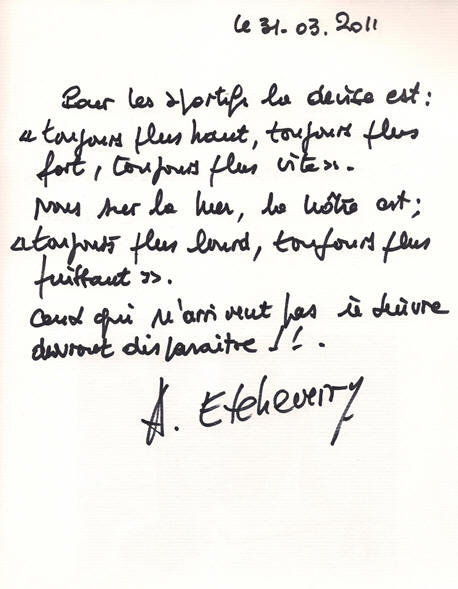 le 31-03.2011
Pour les sportifs la devise est :
« toujours plus haut, toujours plus
fort, toujours plus vite ».
Nous sur la mer, la nôtre est ;
« toujours plus lourd, toujours plus
puissant ».
Ceux qui n'arrivent pas à suivre
devront disparaitre !! .
A. Etcheverry